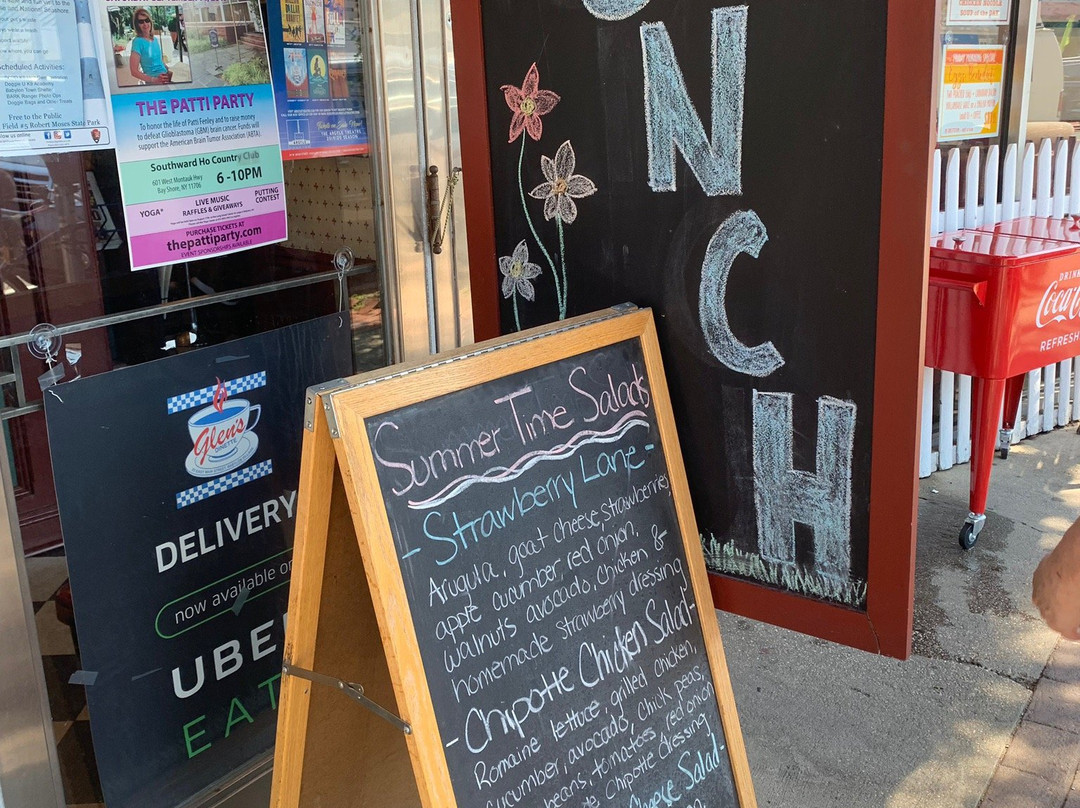 Scheduled Activities:
Free to the Public
Field #5 Robert Moses State Park
THE PATTI PARTY
To honor the life of Patti Fenley and to raise money
to defeat Glioblastoma (GBM) brain cancer. Funds will
support the American Brain Tumor Association (ABTA).
Southward Ho Country Club
601 West Montauk Hwy
Bay Shore, NY 11706
6 -10PM
YOGA*
LIVE MUSIC
RAFFLES & GIVEAWAYS
PUTTING
CONTEST
PURCHASE TICKETS AT
thepattiparty.com
EVENT SPONSORSHIPS AVAILABLE
Glen's
DELIVERY
now available on
UBE
EAT
NCH
Summer Time Salads
- Strawberry Lane -
Arugula, goat cheese, strawberries,
apple cucumber, red onion,
walnuts avocado, chicken &
homemade strawberry dressing
- Chipotle Chicken Salad -
Romaine lettuce, grilled chicken,
cucumber, avocado, chick peas,
beans, tomatoes, red onion
Chipotle dressing
Salad -
DRIN
Coca-Co
REFRESH